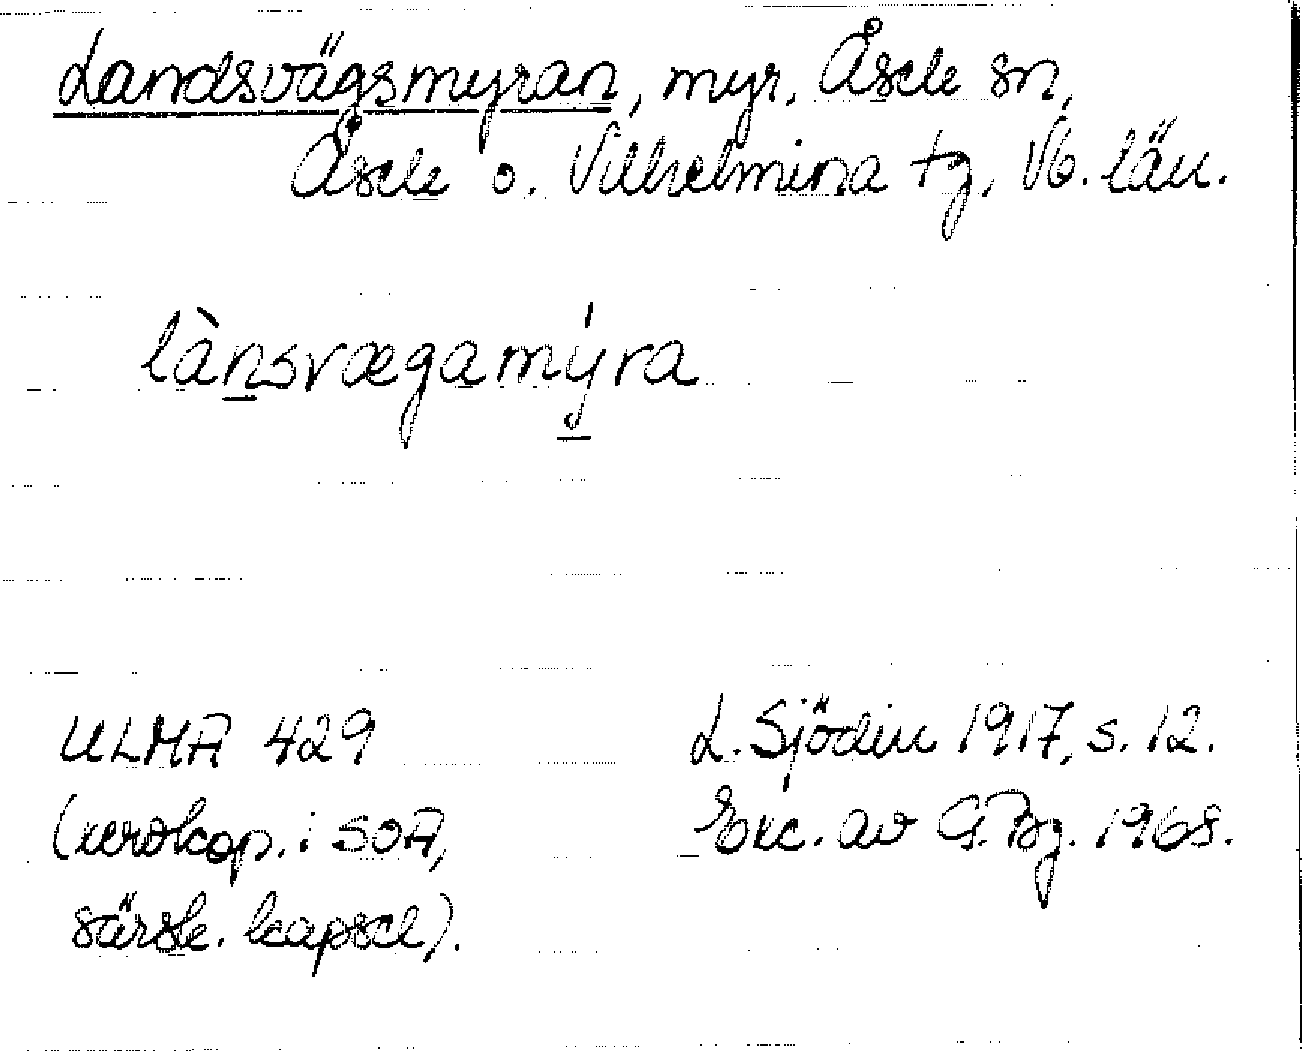 Landsvägsmyran, myr, Åsele sn,
Åsele o. Vilhelmina tg, Vb. län.
là̱nsvægamý̱ra
ULMA 429
(xerokop. i SOA,
särsk. kapsel).
L. Sjödin 1917, s. 12.
Exc. av G. Bg. 1968.